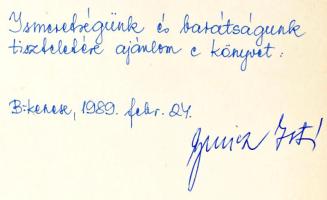 Ismeretségünk és barátságunk
tiszteletére ajánlom e könyvet:
B-kenese, 1989. febr. 24.